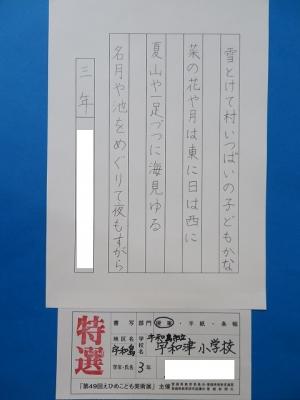 雪とけて村いっぱいの子どもかな
菜の花や月は東に日は西に
夏山や一足づつに海見ゆる
名月や池をめぐりて夜もすがら
三年
特選
書写部門 硬筆・半紙・条幅
地区名 宇和島
学校名 宇和島市立 宇和津小学校
学年・氏名 3年
「第49回えひめこども美術展」主催